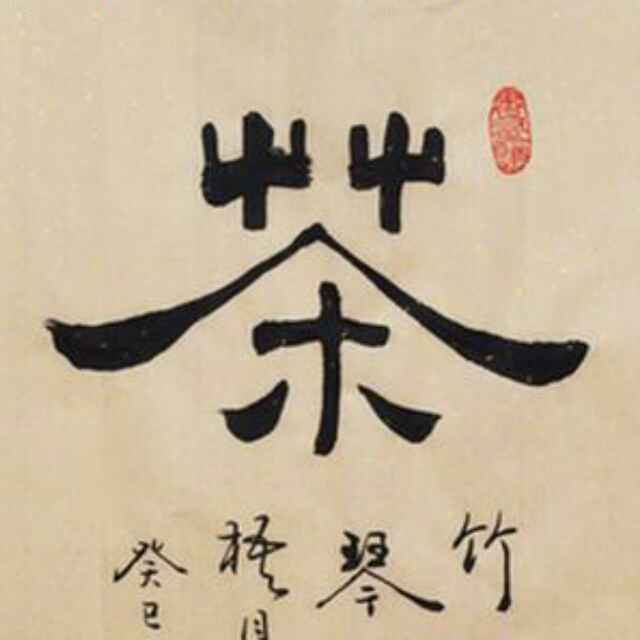 茶
竹
琴
梧月
癸巳